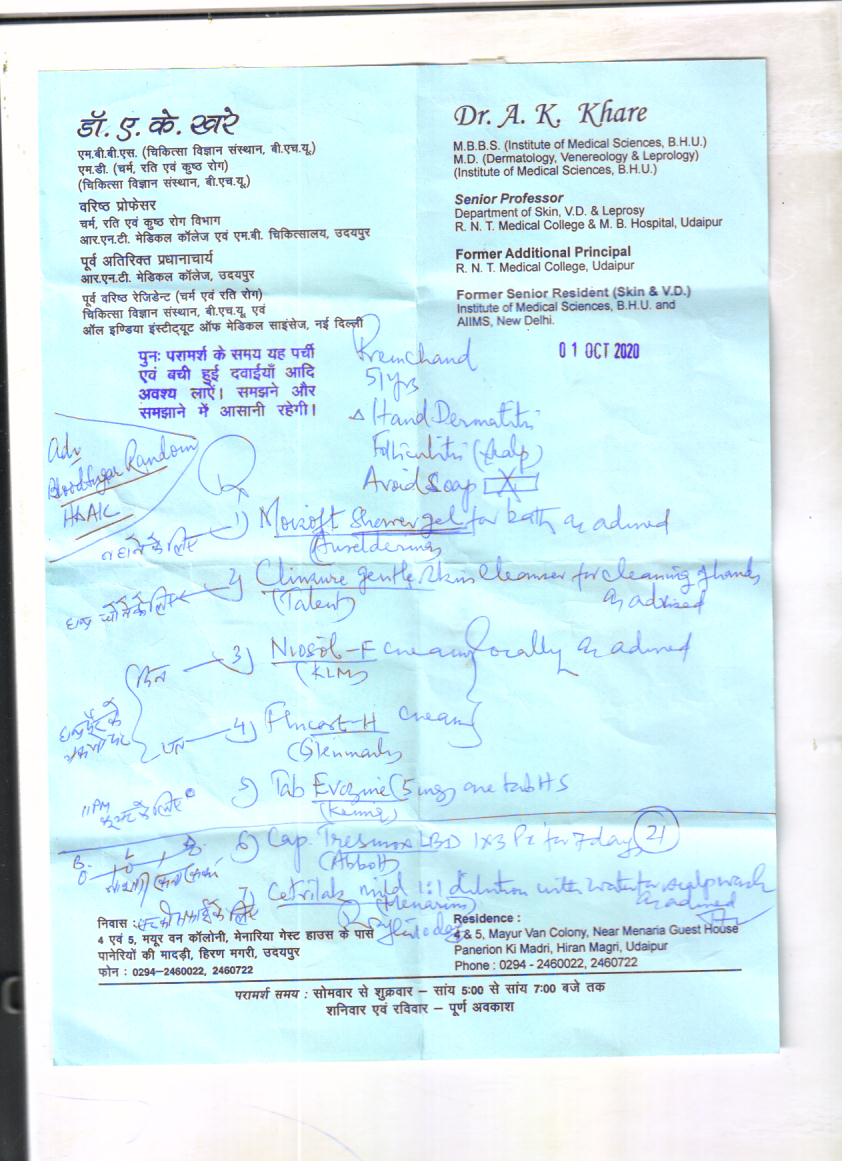 डॉ. ए. के. खरे
एम.बी.बी.एस. (चिकित्सा विज्ञान संस्थान, बी.एच.यू.)
एम.डी. (चर्म, रति एवं कुष्ठ रोग)
(चिकित्सा विज्ञान संस्थान, बी.एच.यू.)
वरिष्ठ प्रोफेसर
चर्म, रति एवं कुष्ठ रोग विभाग
आर.एन.टी. मेडिकल कॉलेज एवं एम.बी. चिकित्सालय, उदयपुर
पूर्व अतिरिक्त प्रधानाचार्य
आर.एन.टी. मेडिकल कॉलेज, उदयपुर
पूर्व वरिष्ठ रेजिडेन्ट (चर्म एवं रति रोग)
चिकित्सा विज्ञान संस्थान, बी.एच.यू. एवं
ऑल इण्डिया इंस्टीट्यूट ऑफ मेडिकल साइंसेज, नई दिल्ली
Dr. A. K. Khare
M.B.B.S. (Institute of Medical Sciences, B.H.U.)
M.D. (Dermatology, Venereology & Leprology)
(Institute of Medical Sciences, B.H.U.)
Senior Professor
Department of Skin, V.D. & Leprosy
R. N. T. Medical College & M. B. Hospital, Udaipur
Former Additional Principal
R. N. T. Medical College, Udaipur
Former Senior Resident (Skin & V.D.)
Institute of Medical Sciences, B.H.U. and
AIIMS, New Delhi.
पुनः परामर्श के समय यह पर्ची
एवं बची हुई दवाईयाँ आदि
अवश्य लाऐं। समझने और
समझाने में आसानी रहेगी।
01 OCT 2020
Premchand
51yrs
Δ Hand Dermatitis
Folliculitis (Scalp)
Avoid Soap
Adv
Blood Sugar Random
1) Moisoft Shower gel for bath as advised
नहाने के लिए
2) gentle Skin Cleanser for cleaning of hands
(Talent) as advised
हाथ धोने के लिए
3) cream locally as advised
(KLM)
दिन
4) Flucort-H cream
(Glenmark)
5) Tab (5mg) one tab HS
11PM
6) Cap. LBD 1x3 for 7 days 21
(Abbott)
B. L D.
7) Cetrilak mild 1:1 dilution with water for scalp wash
(Menarini) as advised
निवास :
4 एवं 5, मयूर वन कॉलोनी, मेनारिया गेस्ट हाउस के पास
पानेरियों की मादड़ी, हिरण मगरी, उदयपुर
फोन : 0294-2460022, 2460722
Residence :
4 & 5, Mayur Van Colony, Near Menaria Guest House
Panerion Ki Madri, Hiran Magri, Udaipur
Phone : 0294 - 2460022, 2460722
परामर्श समय : सोमवार से शुक्रवार – सांय 5:00 से सांय 7:00 बजे तक
शनिवार एवं रविवार – पूर्ण अवकाश